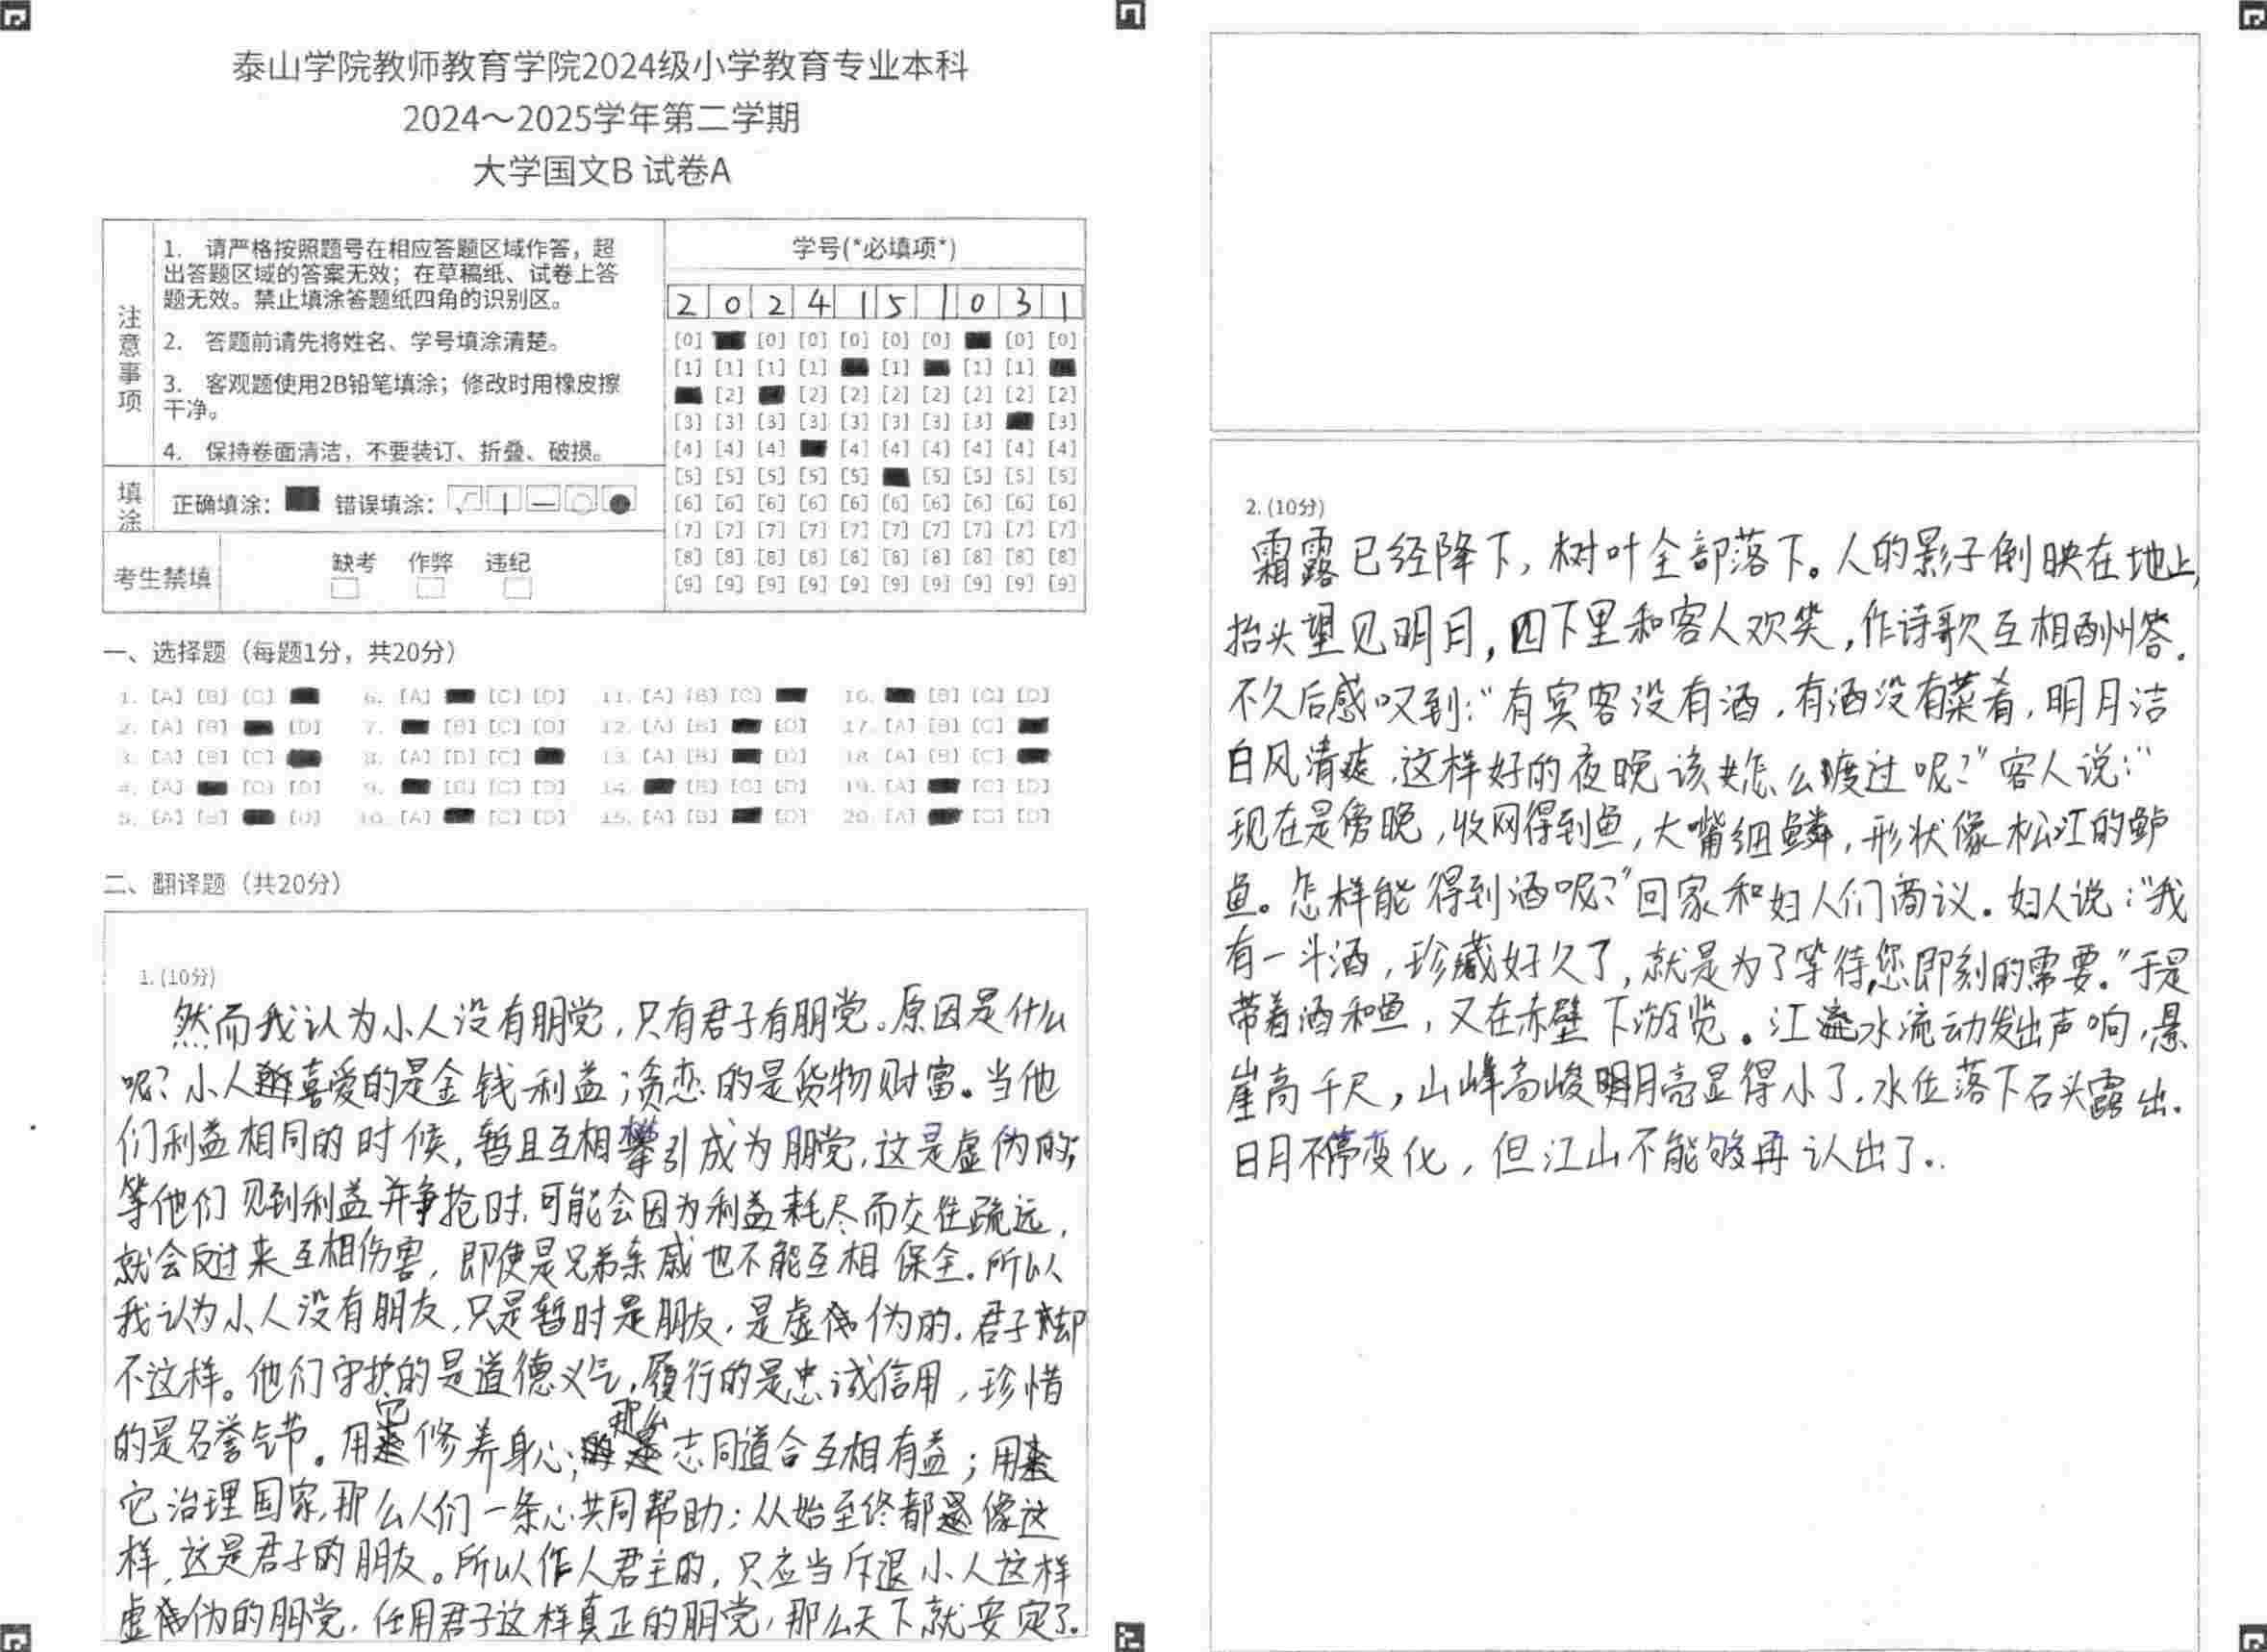 泰山学院教师教育学院2024级小学教育专业本科
2024～2025学年第二学期
大学国文B 试卷A
注意事项
1. 请严格按照题号在相应答题区域作答，超
出答题区域的答案无效；在草稿纸、试卷上答
题无效。禁止填涂答题纸四角的识别区。
2. 答题前请先将姓名、学号填涂清楚。
3. 客观题使用2B铅笔填涂；修改时用橡皮擦
干净。
4. 保持卷面清洁，不要装订、折叠、破损。
填涂
正确填涂： 错误填涂：
考生禁填
缺考 作弊 违纪
学号(*必填项*)
2 0 2 4 1 5 1 0 3 1
[0] [0] [0] [0] [0] [0] [0] [0]
[1] [1] [1] [1] [1] [1] [1]
[2] [2] [2] [2] [2] [2] [2] [2]
[3] [3] [3] [3] [3] [3] [3] [3] [3]
[4] [4] [4] [4] [4] [4] [4] [4] [4]
[5] [5] [5] [5] [5] [5] [5] [5] [5]
[6] [6] [6] [6] [6] [6] [6] [6] [6] [6]
[7] [7] [7] [7] [7] [7] [7] [7] [7] [7]
[8] [8] [8] [8] [8] [8] [8] [8] [8] [8]
[9] [9] [9] [9] [9] [9] [9] [9] [9] [9]
一、选择题（每题1分，共20分）
1. [A] [B] [C] 6. [A] [C] [D] 11. [A] [B] [C] 16. [B] [C] [D]
2. [A] [B] [D] 7. [B] [C] [D] 12. [A] [B] [D] 17. [A] [B] [C]
3. [A] [B] [C] 8. [A] [B] [C] 13. [A] [B] [D] 18. [A] [B] [C]
4. [A] [C] [D] 9. [B] [C] [D] 14. [B] [C] [D] 19. [A] [C] [D]
5. [A] [B] [D] 10. [A] [C] [D] 15. [A] [B] [D] 20. [A] [C] [D]
二、翻译题（共20分）
1. (10分)
然而我认为小人没有朋党，只有君子有朋党。原因是什么
呢？小人喜爱的是金钱利益，贪恋的是货物财富。当他
们利益相同的时候，暂且互相攀引成为朋党，这是虚伪的；
等他们见到利益并争抢时，可能会因为利益耗尽而交往疏远，
就会反过来互相伤害，即使是兄弟亲戚也不能互相保全。所以
我认为小人没有朋友，只是暂时是朋友，是虚伪的。君子却
不这样。他们守护的是道德义气，履行的是忠诚信用，珍惜
的是名誉气节。用它修养身心；那么志同道合互相有益；用
它治理国家，那么人们一条心共同帮助；从始至终都像这
样，这是君子的朋友。所以作人君主的，只应当斥退小人这样
虚伪的朋党，任用君子这样真正的朋党，那么天下就安定了。
2. (10分)
霜露已经降下，树叶全部落下。人的影子倒映在地上，
抬头望见明月，四下里和客人欢笑，作诗歌互相酬答。
不久后感叹到：“有宾客没有酒，有酒没有菜肴，明月洁
白风清爽，这样好的夜晚该怎么度过呢？”客人说：“
现在是傍晚，收网得到鱼，大嘴细鳞，形状像松江的鲈
鱼。怎样能得到酒呢？”回家和妇人们商议。妇人说：“我
有一斗酒，珍藏好久了，就是为了等待您即刻的需要。”于是
带着酒和鱼，又在赤壁下游览。江水流动发出声响，悬
崖高千尺，山峰高峻明月亮显得小了，水位落下石头露出。
日月不停变化，但江山不能够再认出了。